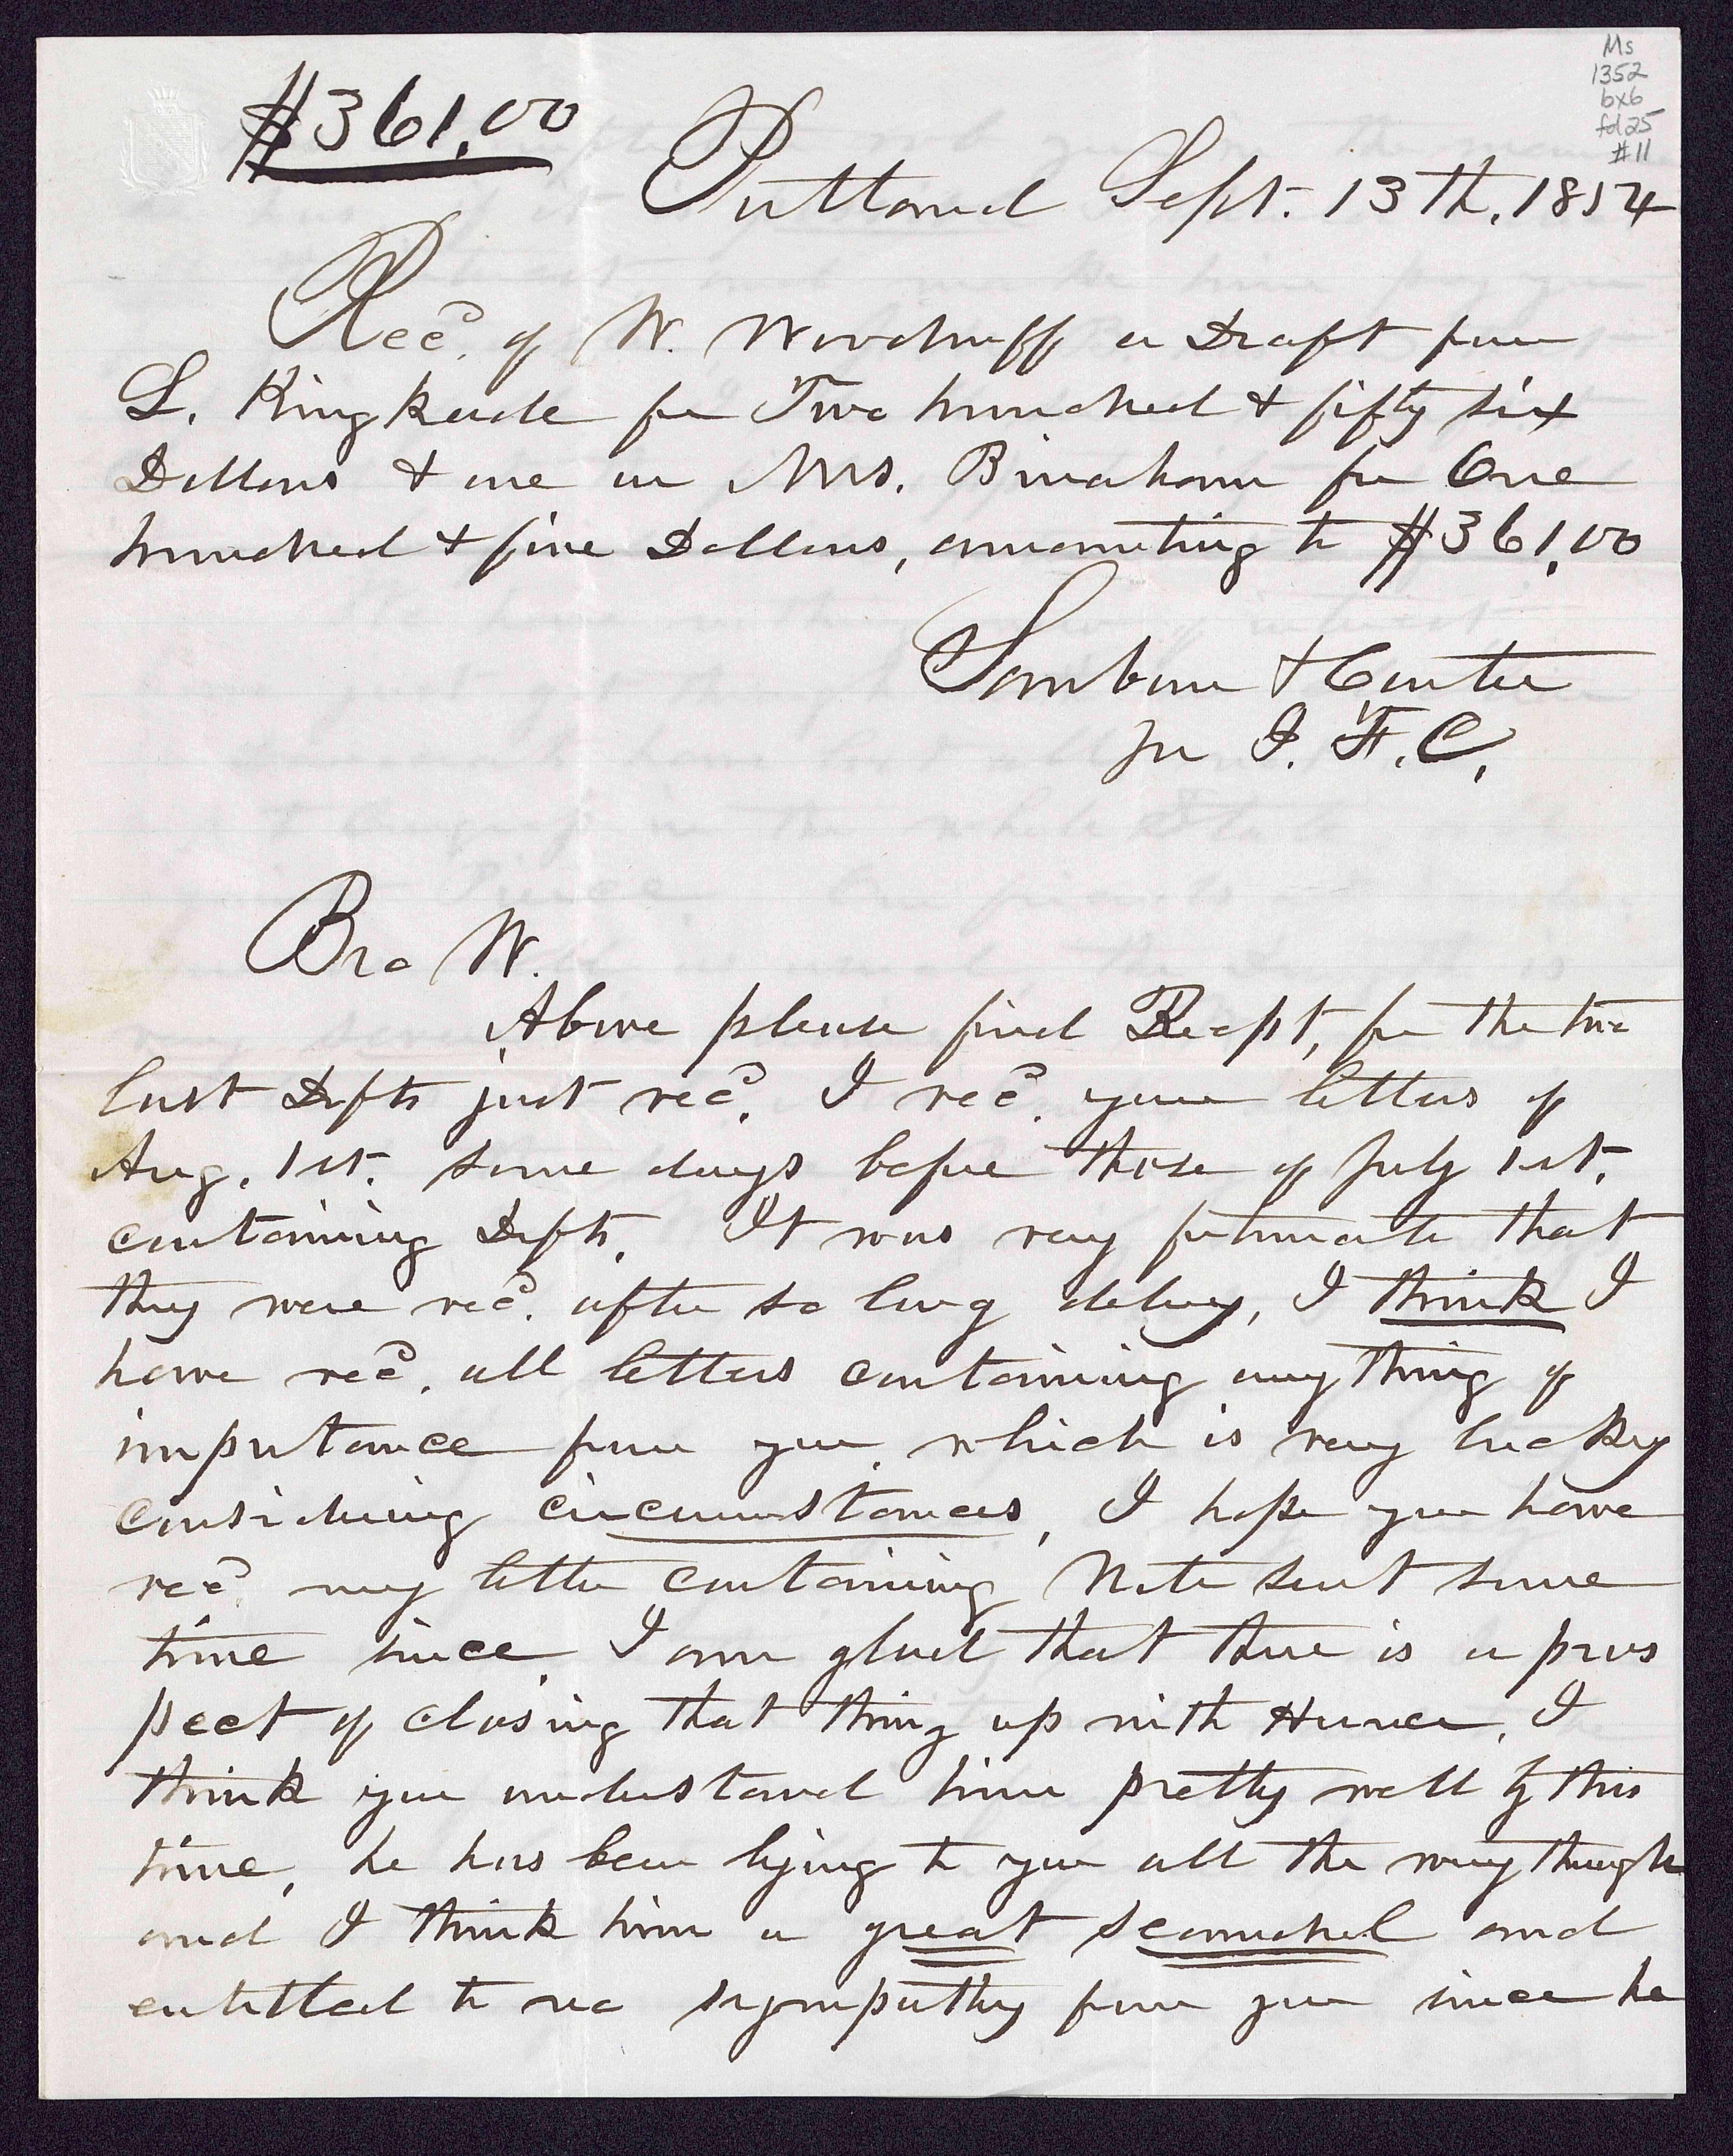 Ms
1352
bx6
fd25
#11
$361.00
Portland Sept. 13th, 1854
Recd. of W. Woodruff a Draft from
L. Kingkade for Two hundred & fifty six
Dollars & one on Mrs. for One
hundred & five Dollars, amounting to $361.00
Sanborn & Carter
pr I. F. C.
Bro W.
Above please find Recpt, for the two
last Dfts just recd. I recd. your letters of
Aug. 1st. some days before those of July 1st.
containing Dfts. It was very fortunate that
they were recd. after so long delay, I think I
have recd. all letters containing any thing of
importance from you, which is very lucky
considering circumstances, I hope you have
recd my letter containing Note sent some
time since. I am glad that there is a pros
pect of closing that thing up with I
think you understand him pretty well by this
time, he has been lying to you all the way through
and I think him a great scoundrel and
entitled to no sympathy from you since he